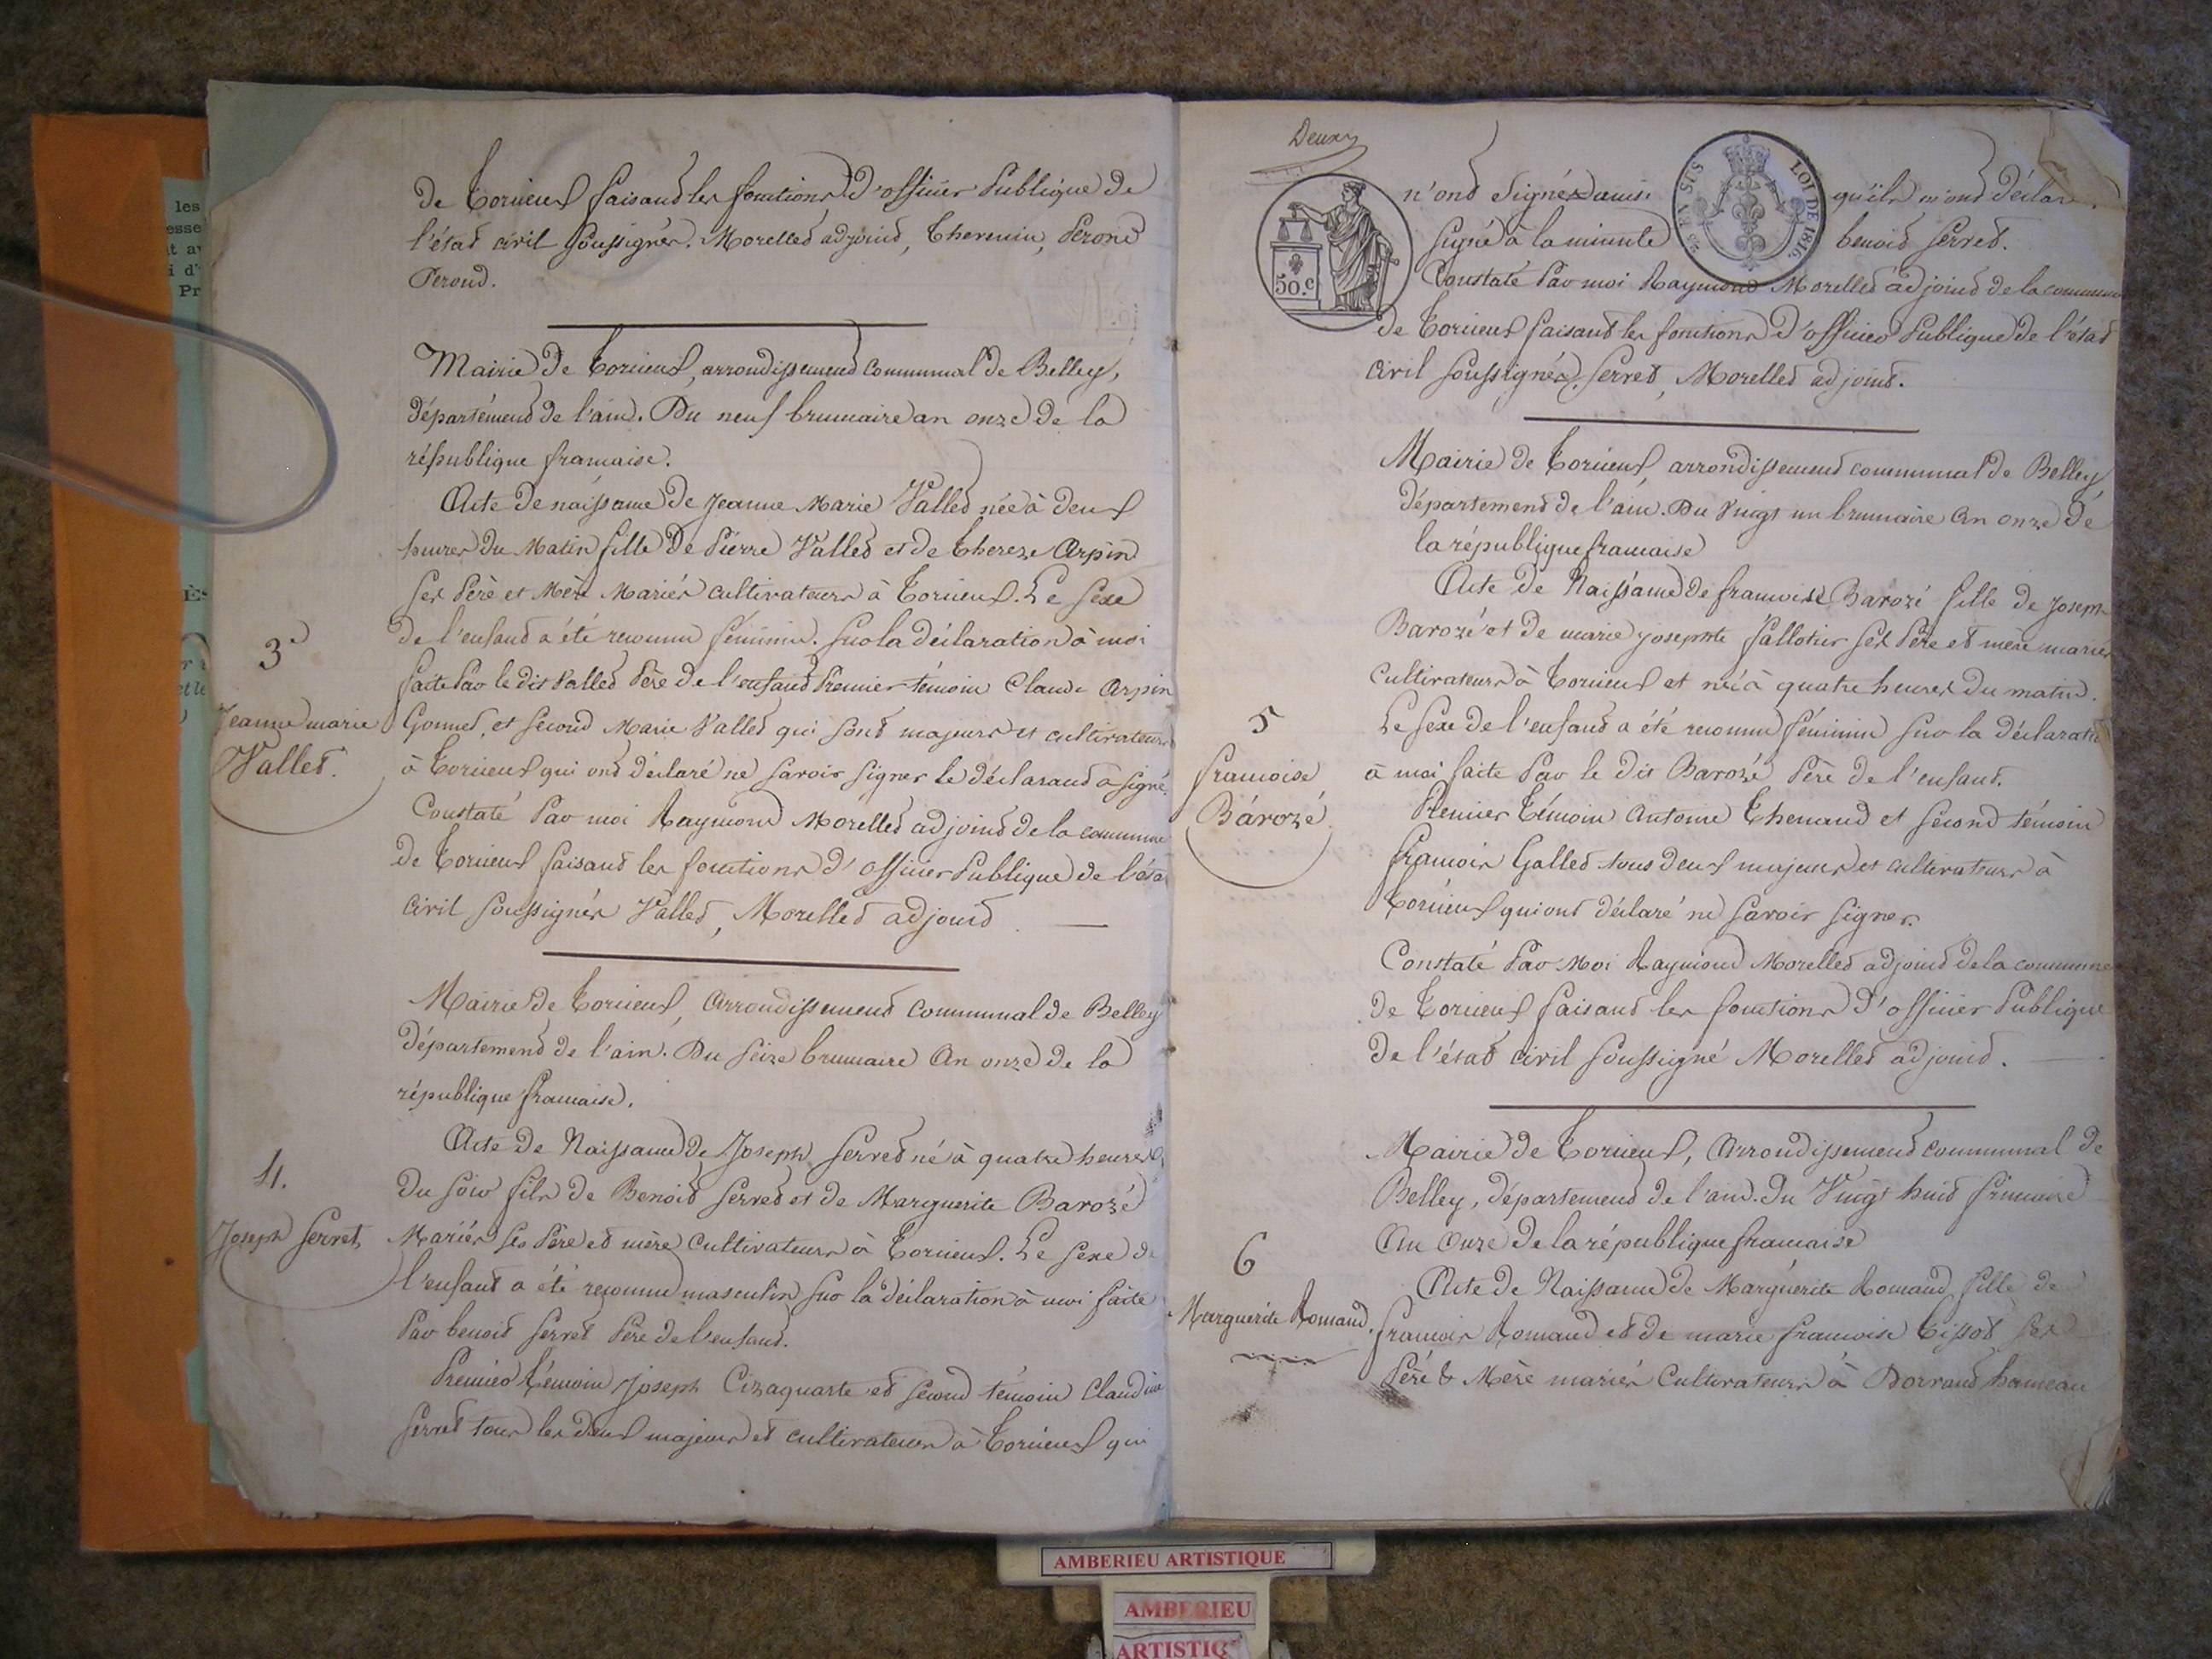 de Torcieux faisant les fonctions d'officier Publique de
l'état civil soussignés. Morellet adjoint, Thevenin, Perond
Perond.
Mairie de Torcieux, arrondissement communal de Belley,
département de l'ain. Du neuf brumaire an onze de la
république francaise.
Acte de naissance de Jeanne Marie Vallet née à deux
heures du Matin fille de Pierre Vallet et de Thereze Arpin
ses Père et Mère Mariés cultivateurs à Torcieux. Le sexe
de l'enfant a été reconnu féminin. sur la déclaration à moi
faite Par le dit Vallet Père de l'enfant Premier témoin Claude Arpin
Gonnet, et second Marie Vallet qui sont majeurs et cultivateurs
à Torcieux qui ont déclaré ne savoir signer le déclarant a signé.
Constaté Par moi Raymond Morellet adjoint de la commune
de Torcieux faisant les fonctions d'officier Publique de l'état
civil soussignés Vallet, Morellet adjoint
3e
Jeanne marie
Vallet.
Mairie de Torcieux, Arrondissement communal de Belley
département de l'ain. Du seize brumaire An onze de la
république francaise.
Acte de Naissance de Joseph Serret né à quatre heures
du soir fils de Benoit Serret et de Marguerite Barozé
Mariés ses Père et mère cultivateurs à Torcieux. Le sexe de
l'enfant a été reconnu masculin sur la déclaration à moi faite
Par benoit Serret Père de l'enfant.
Premier témoin Joseph Cizaquarte et second témoin Claudine
Serret tous les deux majeurs et cultivateurs à Torcieux qui
4.
Joseph Serret
Deux
50.c
LOI DE 1816.
n'ont signés ainsi qu'ils m'ont déclaré.
signé à la minute benoit Serret.
Constaté Par moi Raymond Morellet adjoint de la commune
de Torcieux faisant les fonctions d'officier Publique de l'état
civil soussignés. Serret, Morellet adjoint.
Mairie de Torcieux arrondissement communal de Belley
département de l'ain. Du Vingt un brumaire An onze de
la république francaise
Acte de Naissance de francoise Barozé fille de Joseph
Barozé et de marie josephte fallotier ses Père et mère mariés
cultivateurs à Torcieux et née à quatre heures du matin.
Le sexe de l'enfant a été reconnu féminin sur la déclaration
à moi faite Par le dit Barozé Père de l'enfant.
Premier Témoin Antoine Thenaud et second témoin
francois Gallet tous deux majeurs et cultivateurs à
Torcieux qui ont déclaré ne savoir signer.
Constaté Par Moi Raymond Morellet adjoint de la commune
de Torcieux faisant les fonctions d'officier Publique
de l'état civil soussigné Morellet adjoint.
5
francoise
Bározé
Mairie de Torcieux, Arrondissement communal de
Belley, département de l'ain. du Vingt huit frimaire
An Onze de la république francaise
Acte de Naissance de Marguérite Romand fille de
francois Romand et de marie francoise Tissot ses
Père & Mère mariés Cultivateurs à Dorvand hameau
6
Marguerite Romand.
AMBERIEU ARTISTIQUE
AMBERIEU
ARTISTIQ